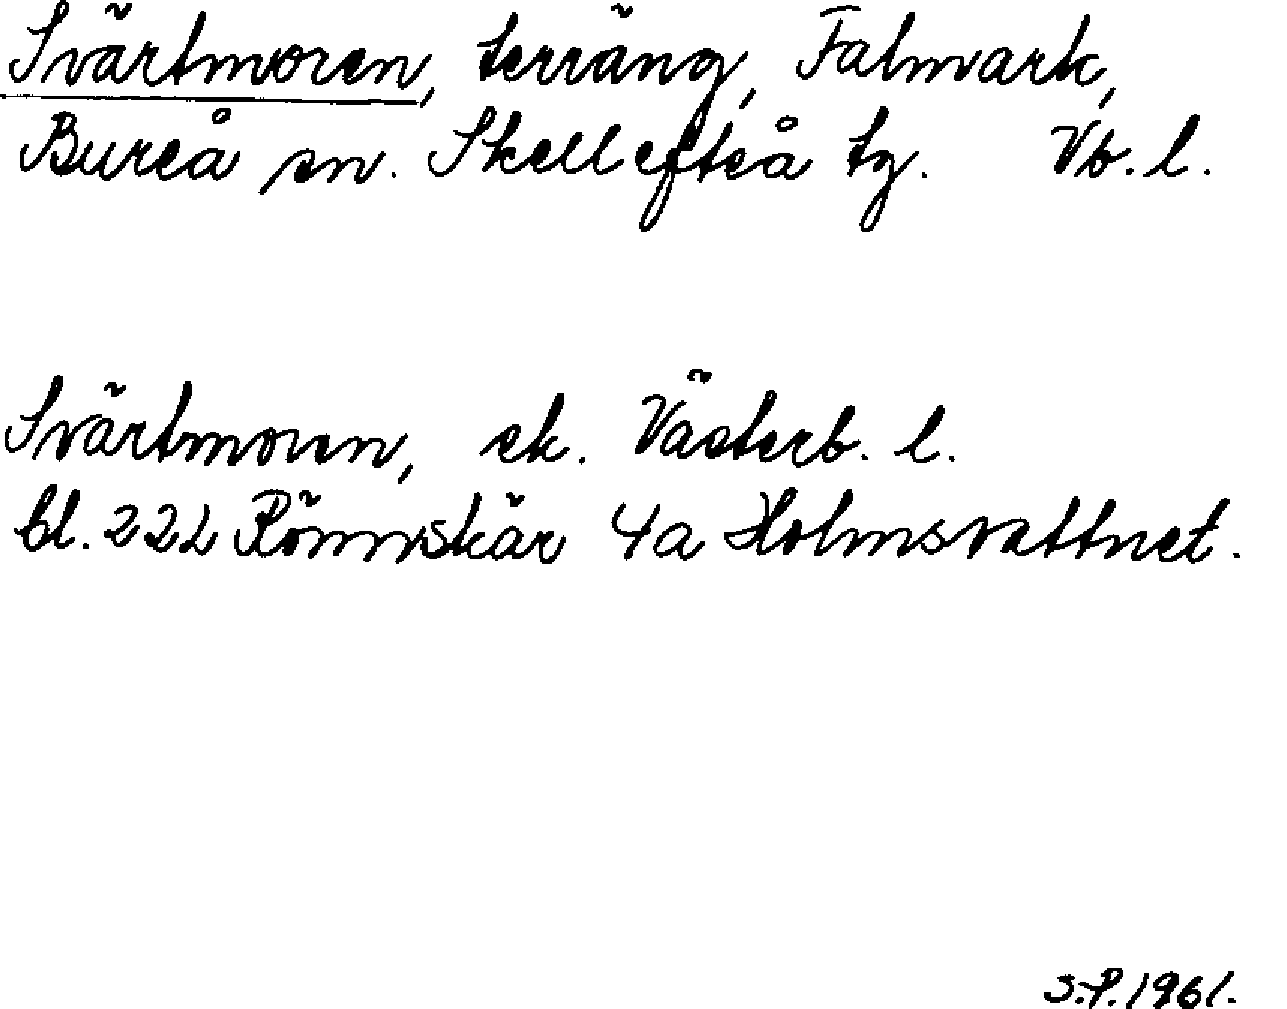 Svärtmoren, terräng, Falmark,
Bureå sn. Skellefteå tg. Vb. l.
Svärtmoren, ek. Västerb. l.
bl. 222 Rönnskär 4a Holmsvattnet.
S.P. 1961.